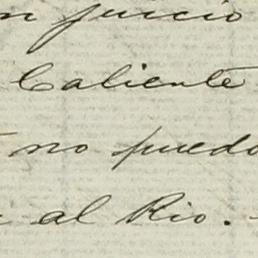 n juicio
Caliente
no puedo
al Rio.